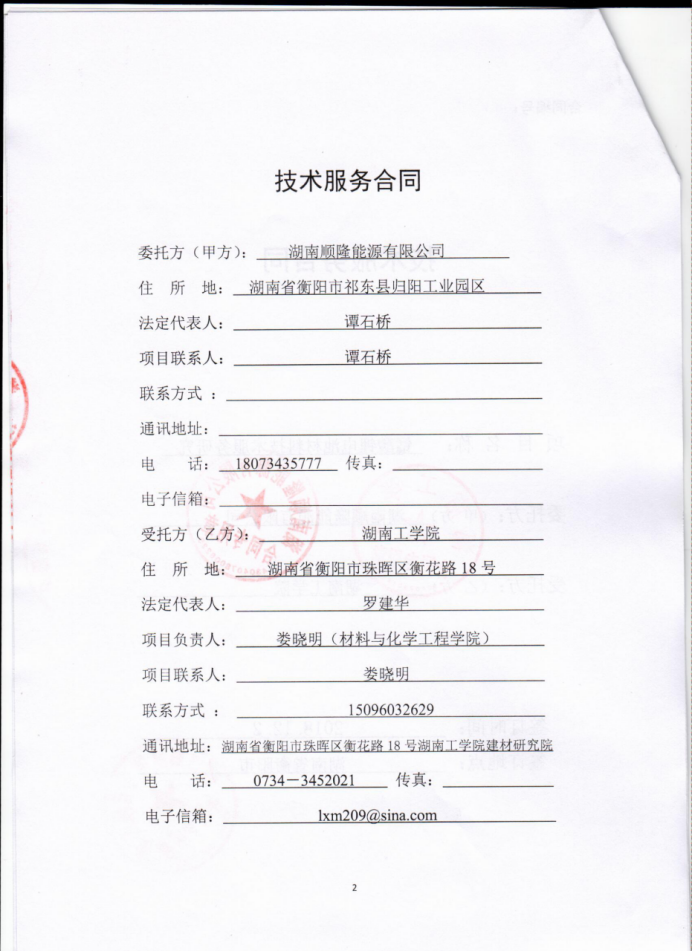 技术服务合同
委托方（甲方）： 湖南顺隆能源有限公司
住 所 地： 湖南省衡阳市祁东县归阳工业园区
法定代表人： 谭石桥
项目联系人： 谭石桥
联系方式 ：
通讯地址：
电 话： 18073435777 传真：
电子信箱：
受托方（乙方）： 湖南工学院
住 所 地： 湖南省衡阳市珠晖区衡花路 18 号
法定代表人： 罗建华
项目负责人： 娄晓明（材料与化学工程学院）
项目联系人： 娄晓明
联系方式 ： 15096032629
通讯地址：湖南省衡阳市珠晖区衡花路 18 号湖南工学院建材研究院
电 话： 0734－3452021 传真：
电子信箱： lxm209@sina.com
2